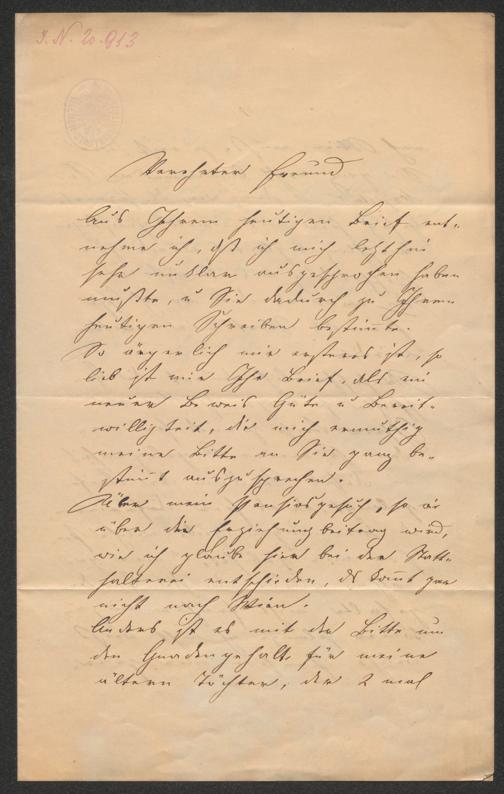 J. N. 20.913
Verehrter Freund
Aus Ihrem heutigen Brief ent-
nehme ich, dß ich mich letzthin
sehr unklar ausgesprochen haben
mußte, u Sie dadurch zu Ihrem
heutigen Schreiben bestimte.
So ärgerlich mir ersteres ist, so
lieb ist mir Ihr Brief, als ein
neuer Beweis Güte u Bereit-
willigkeit, die mich ermuthigt
meine Bitte an Sie ganz be-
stimt auszusprechen.
Über mein Pensiosgesuch, so wie
über den Erziehungsbeitrag wird,
wie ich glaube hier bei der Statt-
halterei entschieden, ds komt gar
nicht nach Wien.
Anders ist es mit der Bitte um
den Gnadengehalt für meine
ältern Töchter, der 2 mal